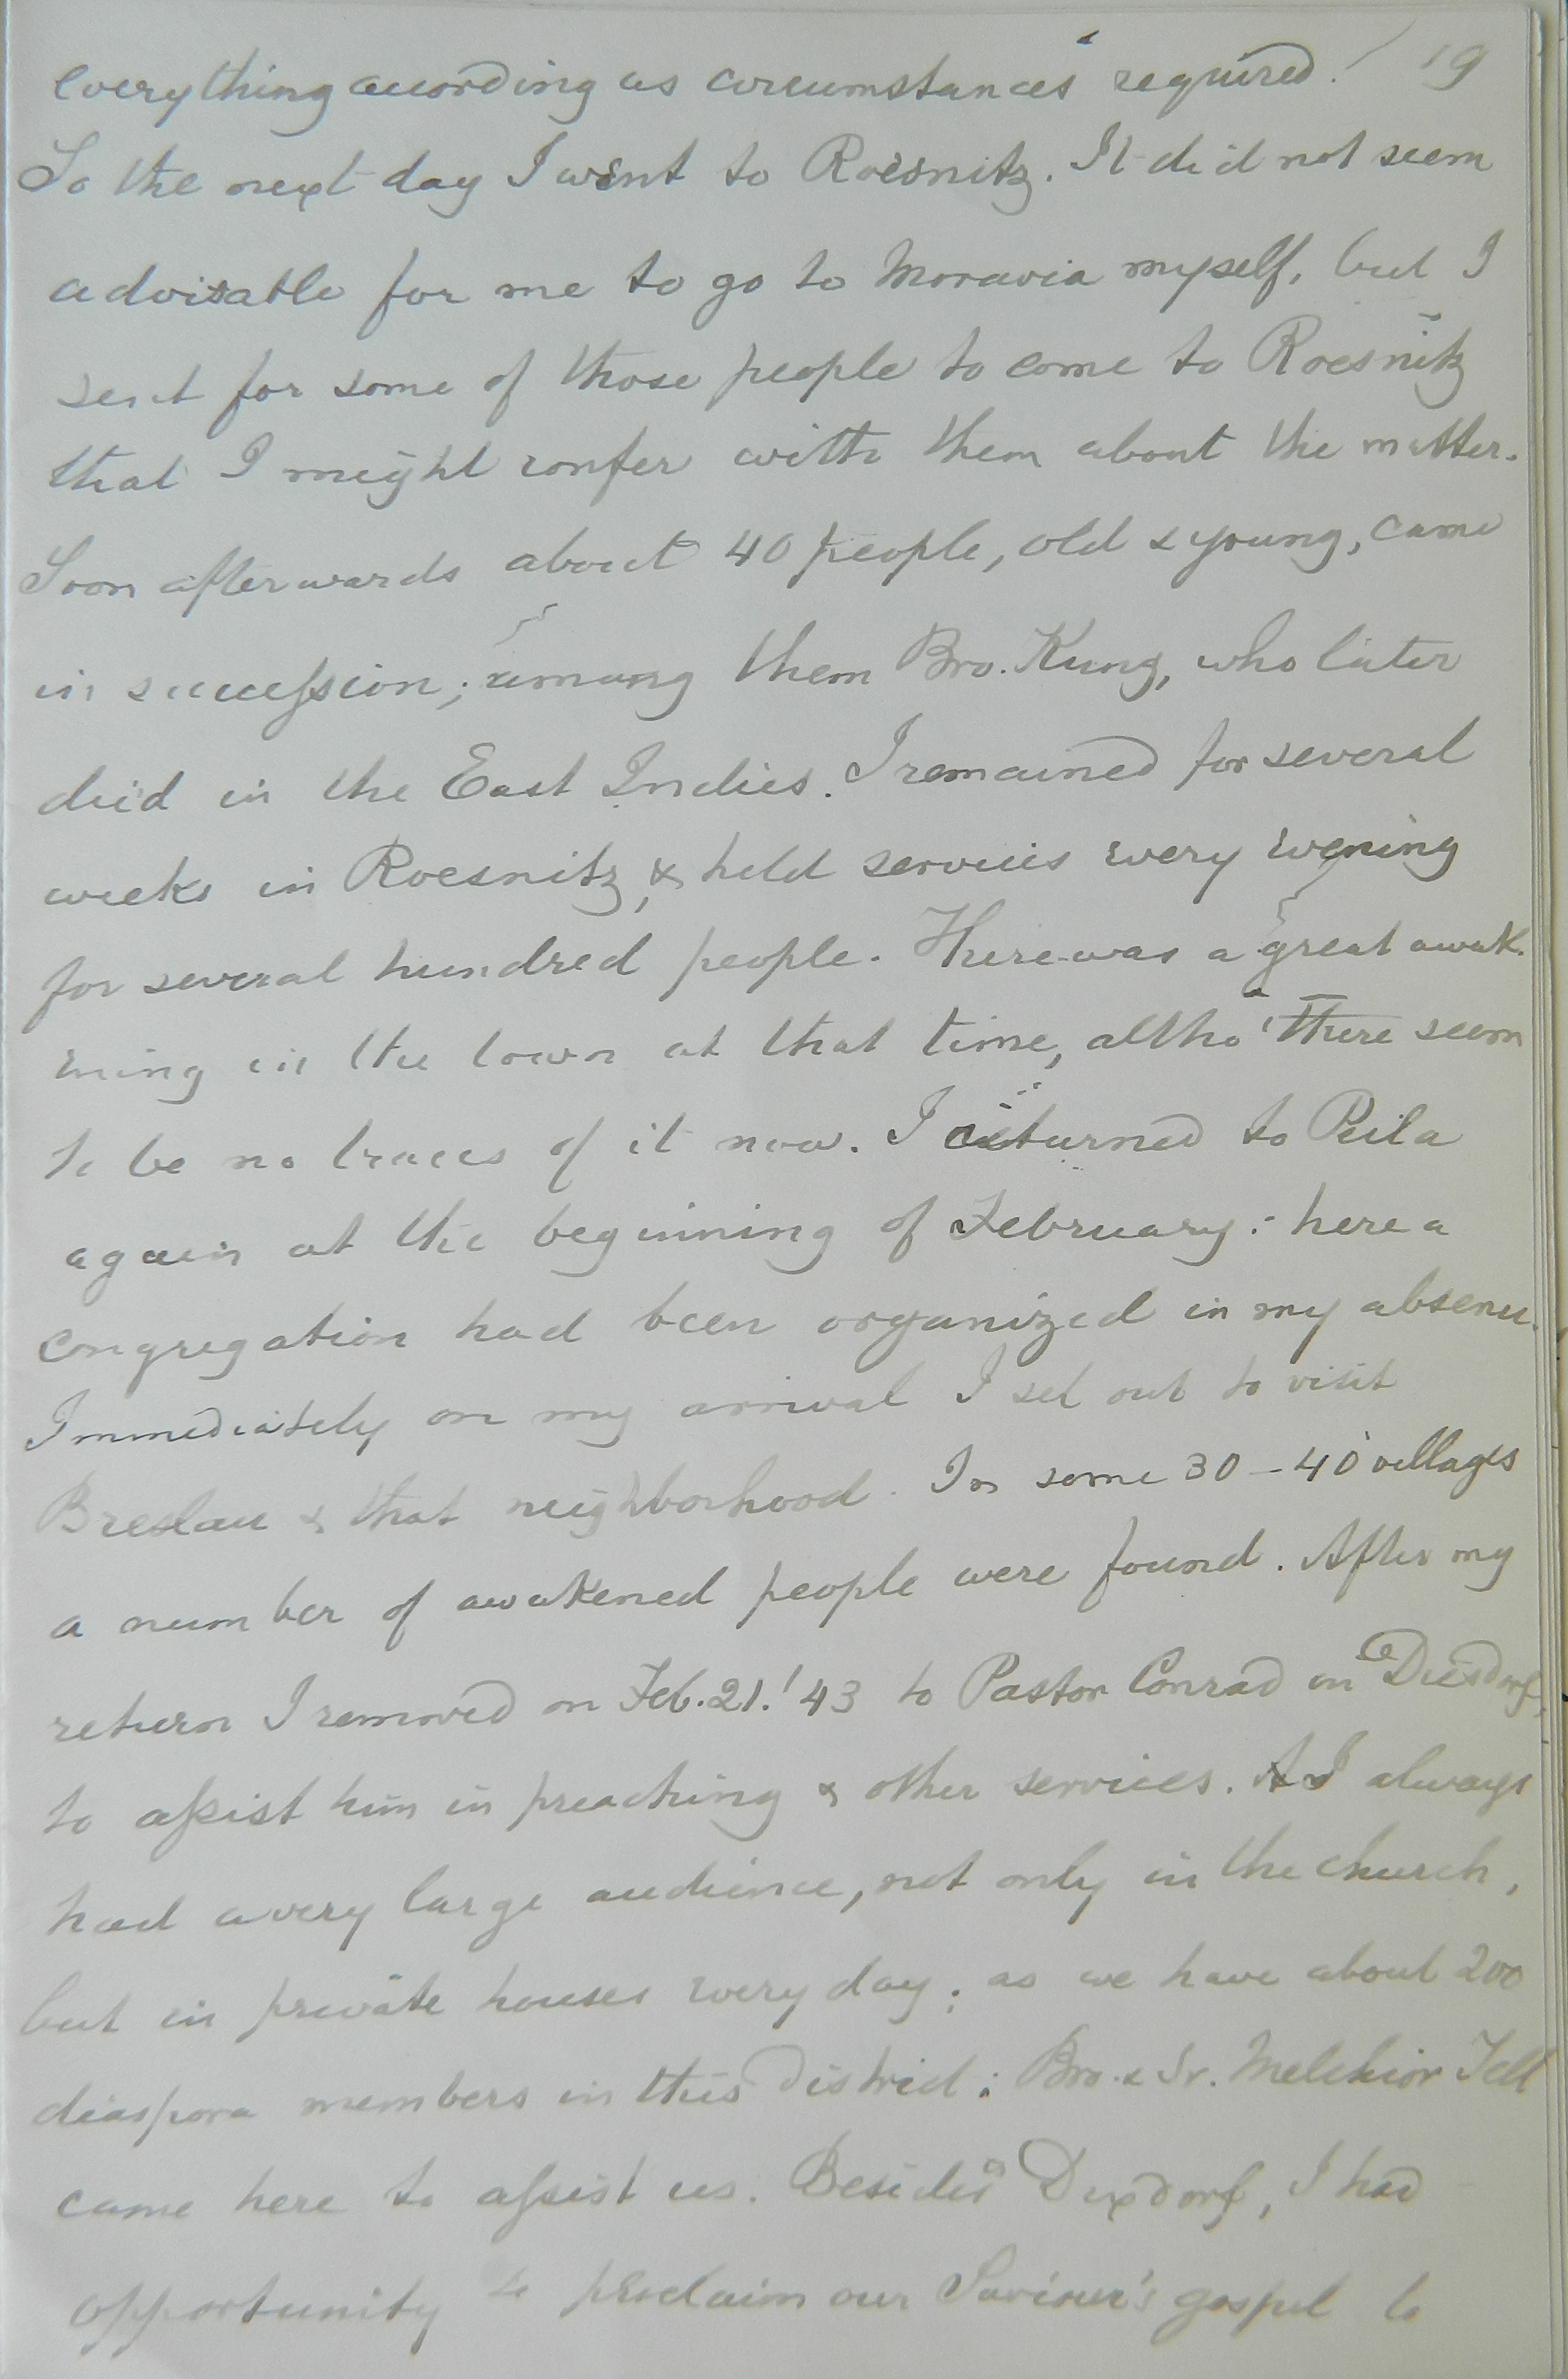 everything according as circumstances required. 19
So the next day I went to Roesnitz. It did not seem
advisable for me to go to Moravia myself, but I
sent for some of those people to come to Roesnitz
that I might confer with them about the matter.
Soon afterwards about 40 people, old & young, came
in succession; among them Bro. Kung, who later
died in the East Indies. I remained for several
weeks in Roesnitz, & held services every evening
for several hundred people. There was a great awak-
ening in the town at that time, altho' there seem
to be no traces of it now. I returned to Peila
again at the beginning of February: here a
congregation had been organized in my absence.
Immediately on my arrival I set out to visit
Breslau & that neighborhood. In some 30-40 villages
a number of awakened people were found. After my
return I removed on Feb. 21. '43 to Pastor Conrad in
to assist him in preaching & other services. I always
had a very large audience, not only in the church,
but in private houses every day; as we have about 200
diaspora members in this district: Bro. & Sr. Melchior
came here to assist us. Besides Dixdorf, I had
opportunity to proclaim our Saviour's gospel to